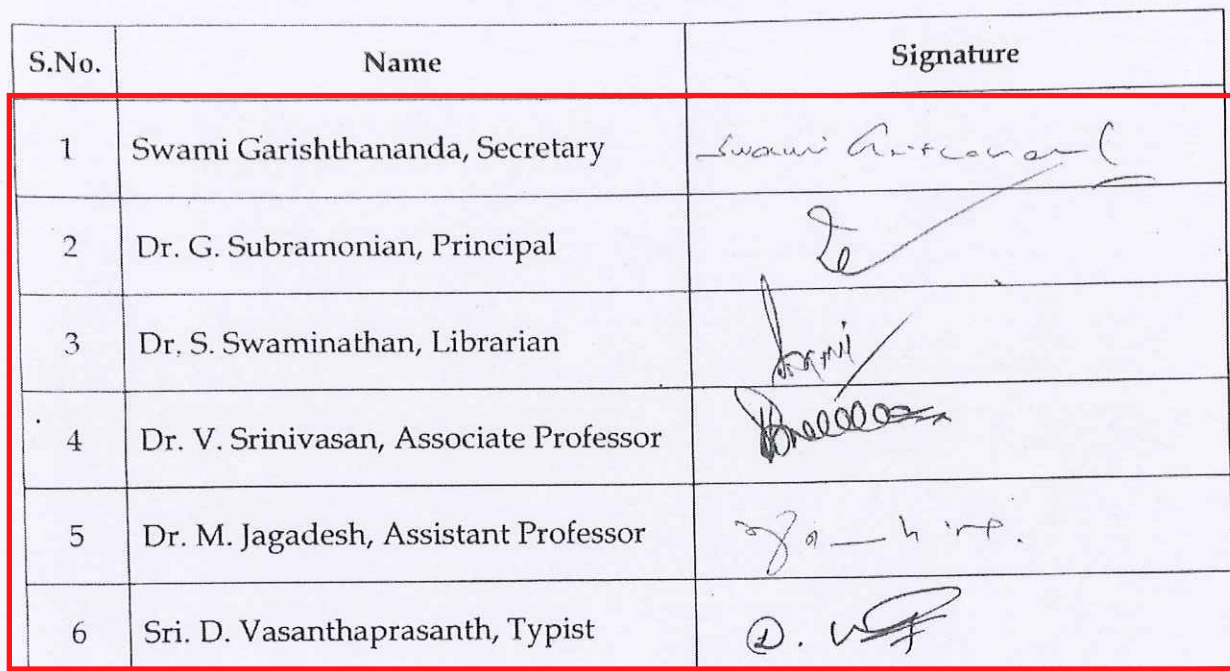 S.No. Name Signature
1 Swami Garishthananda, Secretary Swami
2 Dr. G. Subramonian, Principal
3 Dr. S. Swaminathan, Librarian Swami
4 Dr. V. Srinivasan, Associate Professor
5 Dr. M. Jagadesh, Assistant Professor
6 Sri. D. Vasanthaprasanth, Typist D.